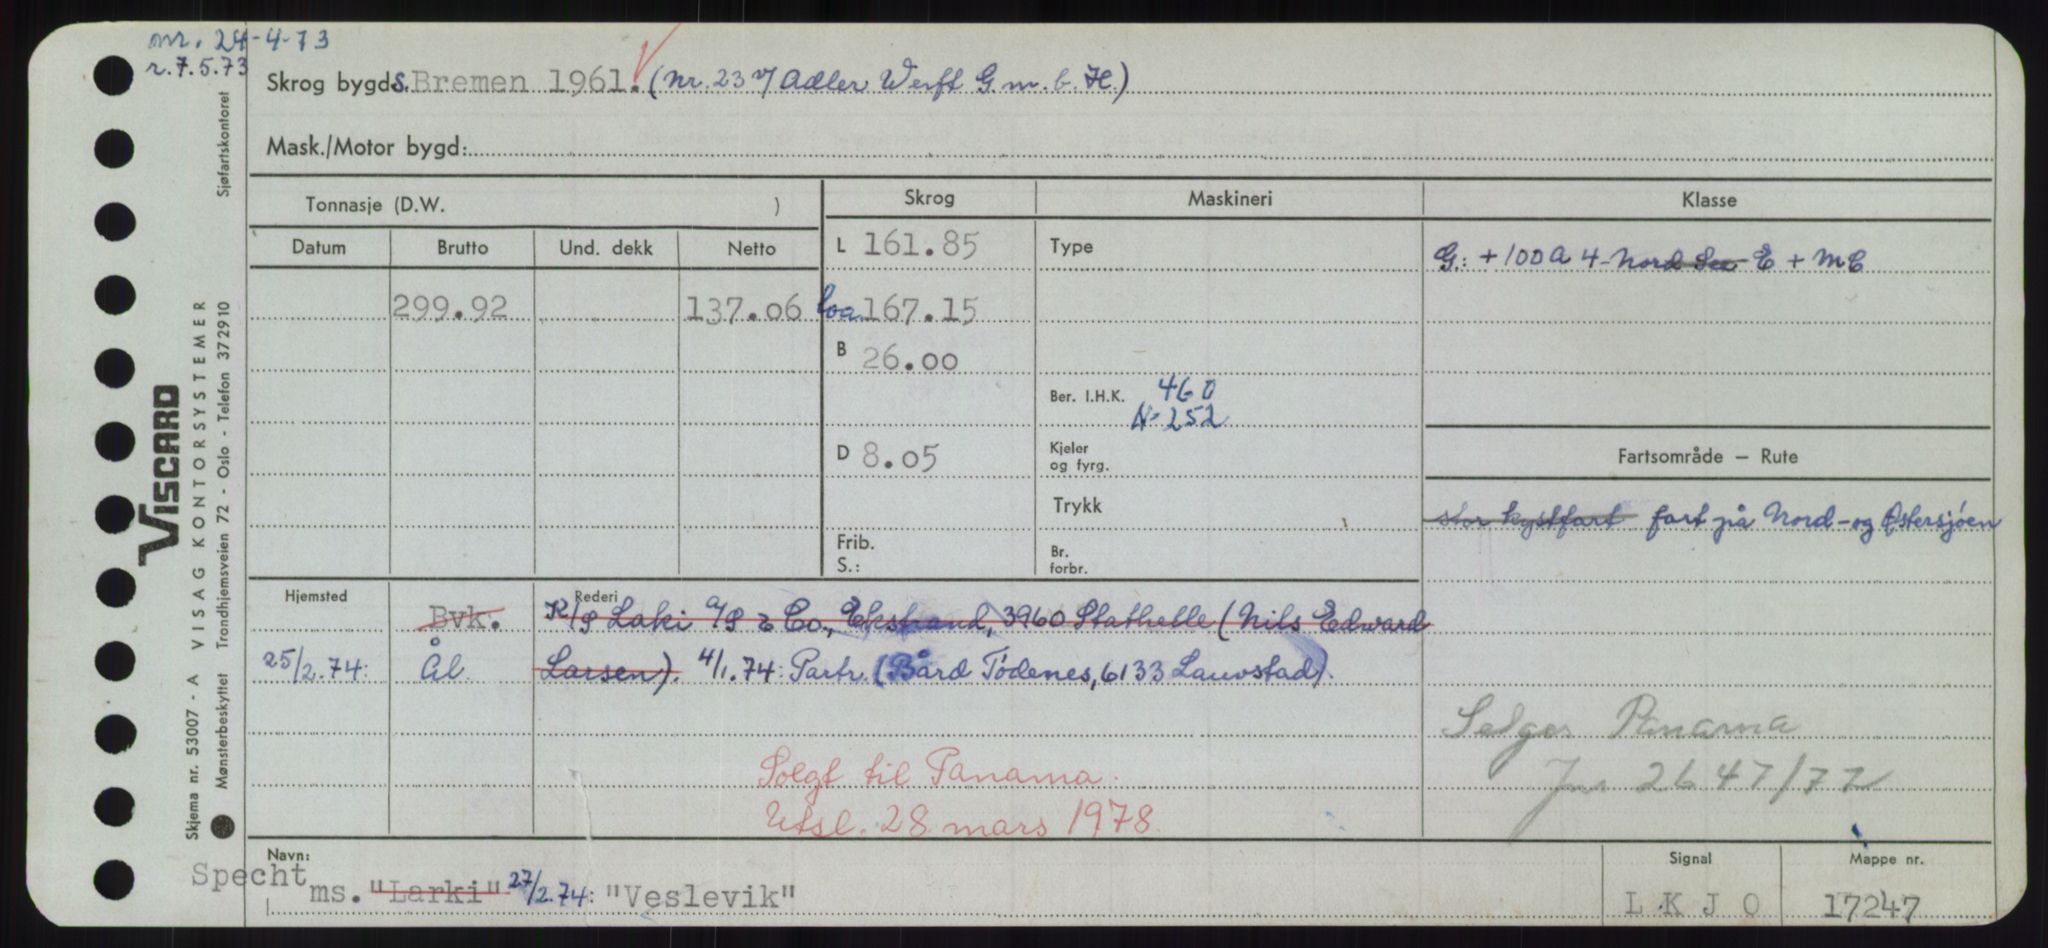 nr. 24-4-73
r. 7.5.73
Skrog bygd: S. Bremen 1961. (nr. 23 v/ Adler Werft G.m.b.H.)
Mask./Motor bygd:
Sjøfartskontoret
Tonnasje (D.W. )
Skrog
Maskineri
Klasse
Datum Brutto Und. dekk Netto
L 161.85
Type
G: + 100 A 4 - Nord See - E + MC
299.92 137.06
loa 167.15
B 26.00
Ber. I.H.K. 460
N = 252
D 8.05
Kjeler
og fyrg.
Fartsområde — Rute
Trykk
stor kystfart fart på Nord- og Østersjøen
Frib.
S.:
Br.
forbr.
Hjemsted
Rederi
Bvk. K/S Laki A/S & Co., Ekstrand, 3960 Stathelle (Nils Edward
25/2.74: Ål Larsen). 4/1.74: Partr. (Bård Tödenes, 6133 Lauvstad).
Selges Panama
Jnr 2647/77
Solgt til Panama.
Utsl. 28 mars 1978.
Navn:
Specht
ms. "Larki" 27/2.74: "Veslevik"
Signal
L K J O
Mappe nr.
17247
VISCARD
VISAG KONTORSYSTEMER
Skjema nr. 53007 - A
Mønsterbeskyttet Trondhjemsveien 72 - Oslo - Telefon 372910